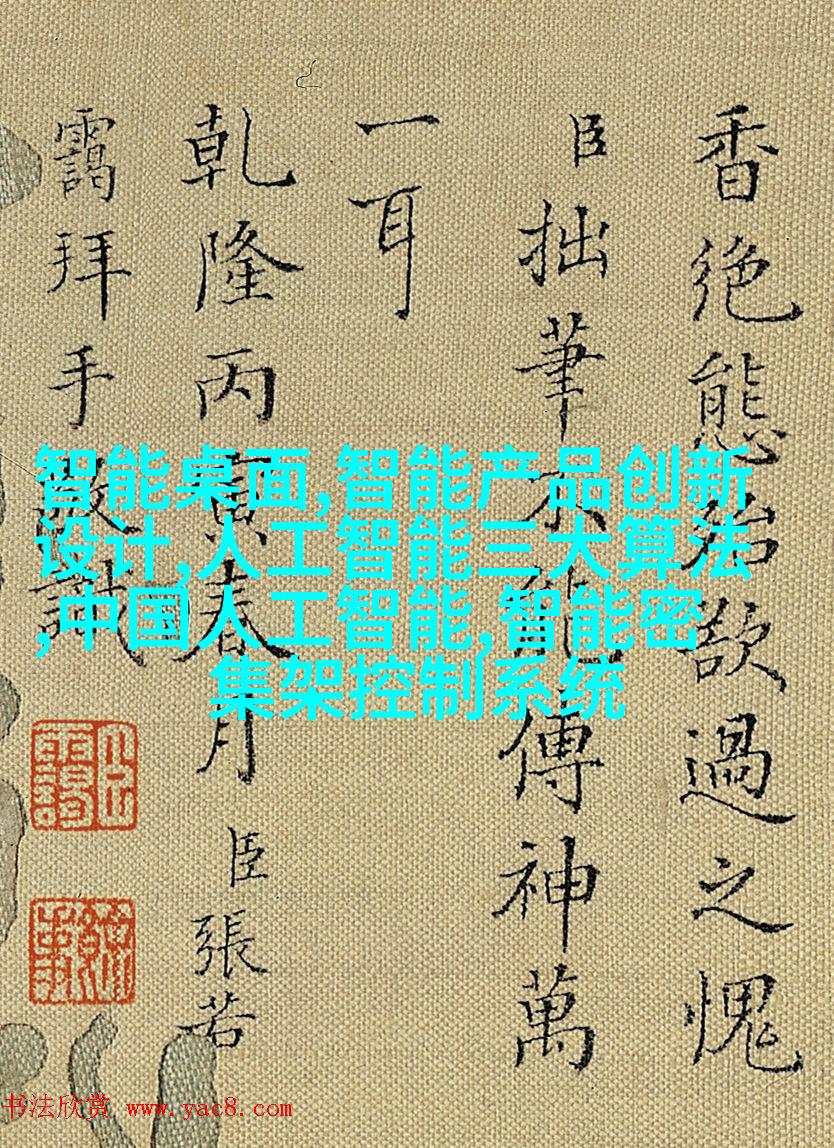 香絶態殆欲過之愧
臣拙筆不能傳神萬
一耳
乾隆丙寅春月臣張若
靄拜手敬識
智能桌面,智能产品创新
设计,人工智能三大算法
,中国人工智能,智能密
集架控制系统
书法欣赏 www.yac8.com